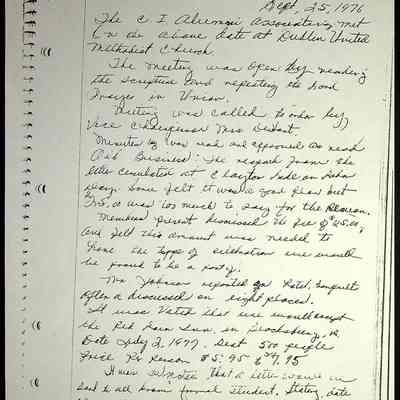 Sept. 25, 1976
The C I Alumni Association met
on the above date at Dublin United
Methodist Church.
The Meeting was open by reading
the Scripture and repeating the Lord
Prayer in Union.
Meeting was called to order by
Vice Chairperson Mrs
Minutes was read and approved as read
Old Business: The report from the
letter circulated at Claytor Lake on Labor
Day. Some felt it was a good plan but
was too much to pay for the Reunion.
Members present discussed the fee of
and felt this amount was needed to
have the type of celebration we would
be proud to be a part of.
Mrs Johnson reported on Hotel, banquets
after a discussed on eight places.
It was Voted that we would accept
the Red Lion Inn, in Blacksburg, Va
Date July 2, 1977. Seat 500 people
Price Per Person $5.95 to $7.95
It was that a letter would be
send to all known former student. Stating, date